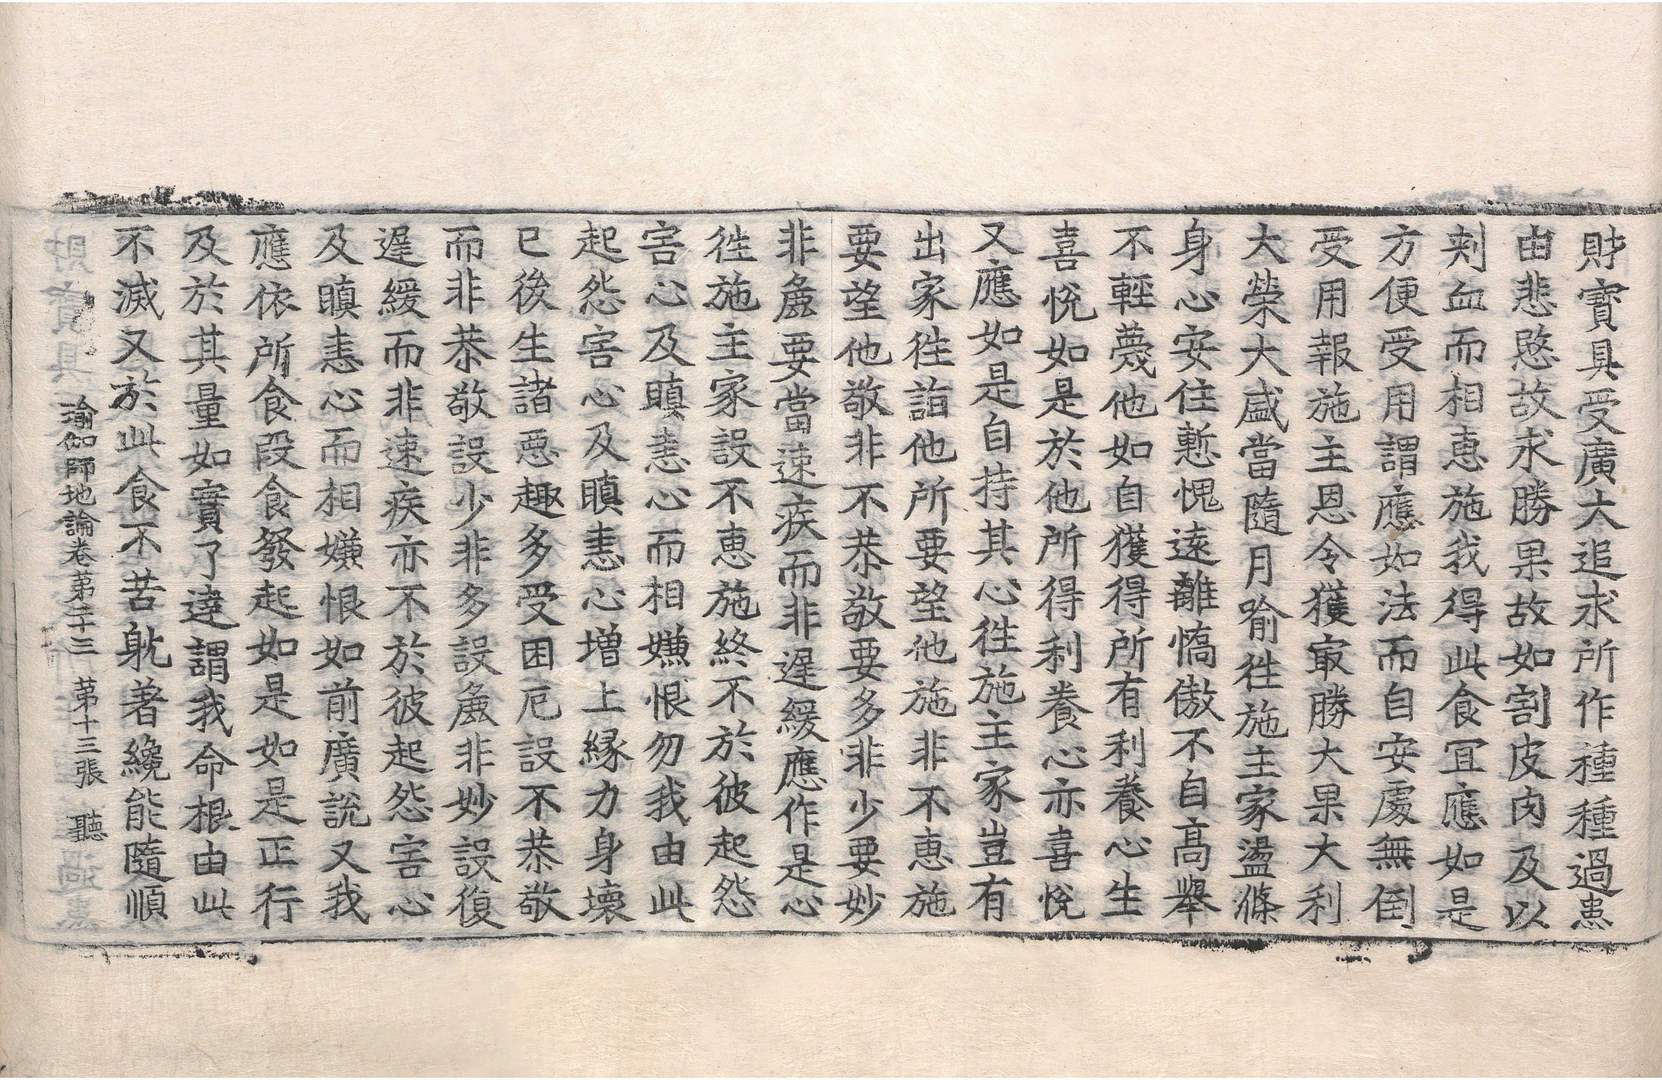 財寶具受廣大追求所作種種過患
由悲愍故求勝果故如割皮肉及以
刾血而相惠施我得此食宜應如是
方便受用謂應如法而自安處無倒
受用報施主恩令獲㝡勝大果大利
大榮大盛當隨月喻徃施主家盪滌
身心安住慙愧遠離憍傲不自高舉
不輕蔑他如自獲得所有利養心生
喜悅如是於他所得利養心亦喜悅
又應如是自持其心徃施主家豈有
出家徃詣他所要望他施非不惠施
要望他敬非不恭敬要多非少要妙
非麁要當速疾而非遲緩應作是心
徃施主家設不惠施終不於彼起怨
害心及瞋恚心而相嫌恨勿我由此
起怨害心及瞋恚心增上緣力身壞
已後生諸惡趣多受困厄設不恭敬
而非恭敬設少非多設麁非妙設復
遲緩而非速疾亦不於彼起怨害心
及瞋恚心而相嫌恨如前廣說又我
應依所食段食發起如是如是正行
及於其量如實了達謂我命根由此
不滅又於此食不苦躭著纔能隨順
瑜伽師地論卷第二十三　第十三張　聽